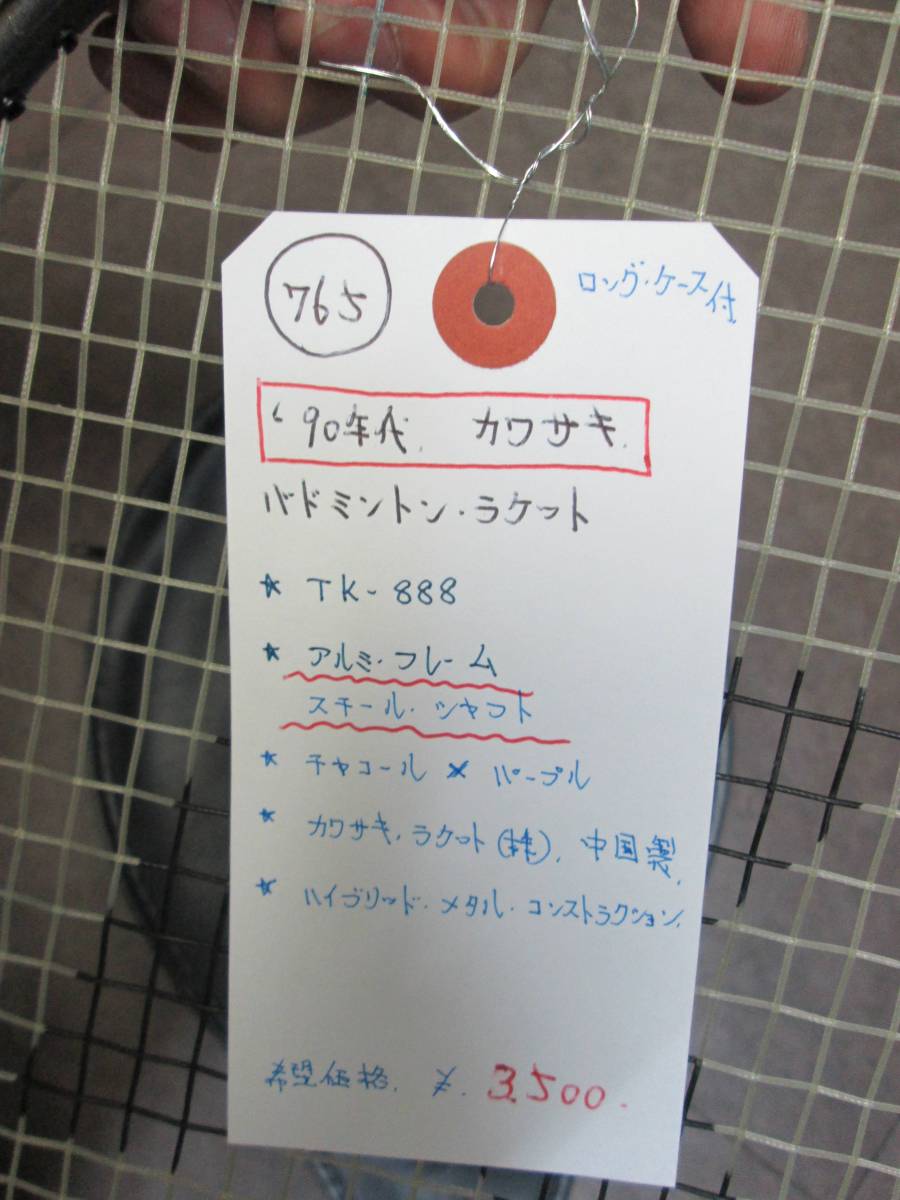 765
ロング・ケース付
'90年代. カワサキ.
バドミントン・ラケット
★ TK-888
★ アルミ・フレーム
スチール・シャフト
★ チャコール × パープル
★ カワサキ・ラケット(株). 中国製.
★ ハイブリッド・メタル・コンストラクション.
希望価格. ¥. 3,500.